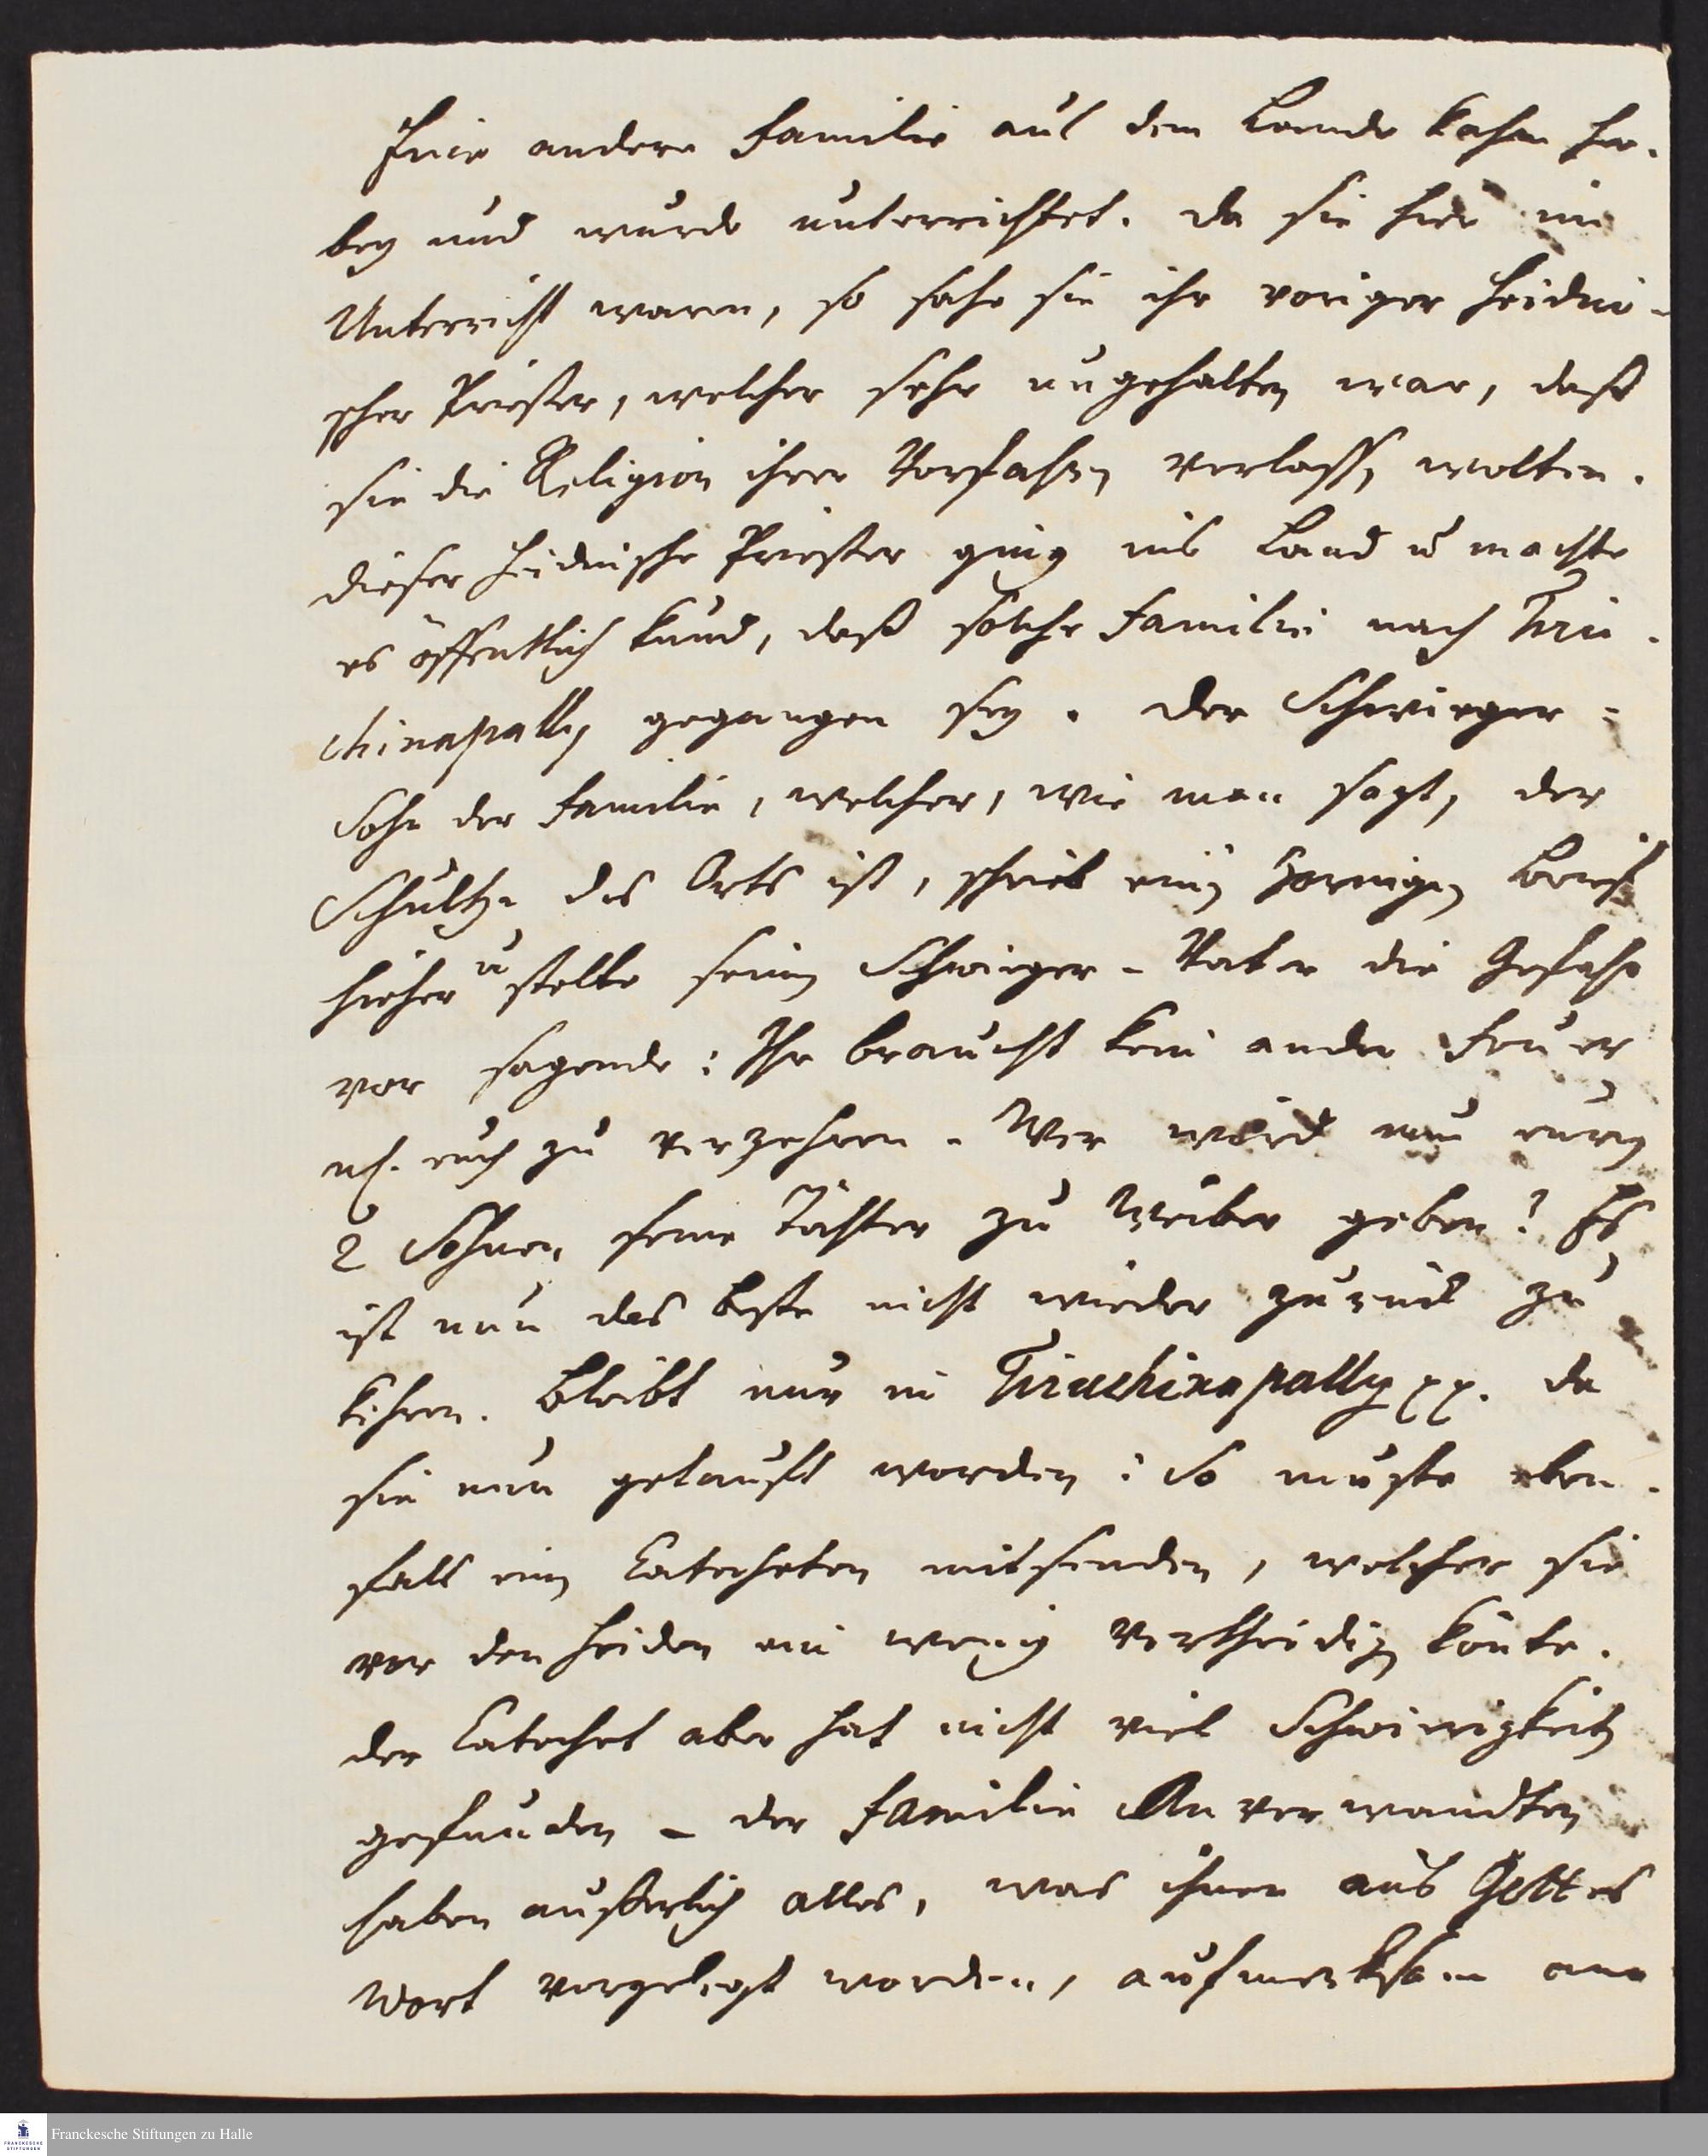 Eine andere Familie aus dem Lande kahm her-
bey und wurde unterrichtet. Da sie hier im
Unterricht waren, so sahe sie ihr voriger heidni-
scher Priester, welcher sehr ungehalten war, daß
sie die Religion ihrer Vorfahren verlassen wolten.
Dieser heidnische Priester ging ins Land u machte
es öffentlich kund, daß solche Familie nach Tiru-
chinapally gegangen sey. Der Schwieger-
Sohn der Familie, welcher, wie man sagt, der
Schultze des Orts ist, schrieb einen zornigen Brief
hieher u stellte seinem Schwieger-Vater die Gefahr
vor sagende: Ihr braucht kein ander Feuer
euch zu verzehren. Wer wird nun euren
2 Söhnen seine Töchter zu Weiber geben? Es
ist nun das beste nicht wieder zurück zu
kehren. Bleibt nur in Tiruchinapally pp. Da
sie nun getauft worden: So muste eben-
falls einen Catecheten mitsenden, welcher sie
vor den Heiden ein wenig vertheidigen könte.
Der Catechet aber hat nicht viel Schwierigkeiten
gefunden – der Familie Anverwandten
haben äußerlich alles, was ihnen aus Gottes
Wort vorgelegt worden, aufmerksam an-
Franckesche Stiftungen zu Halle
FRANCKESCHE
STIFTUNGEN